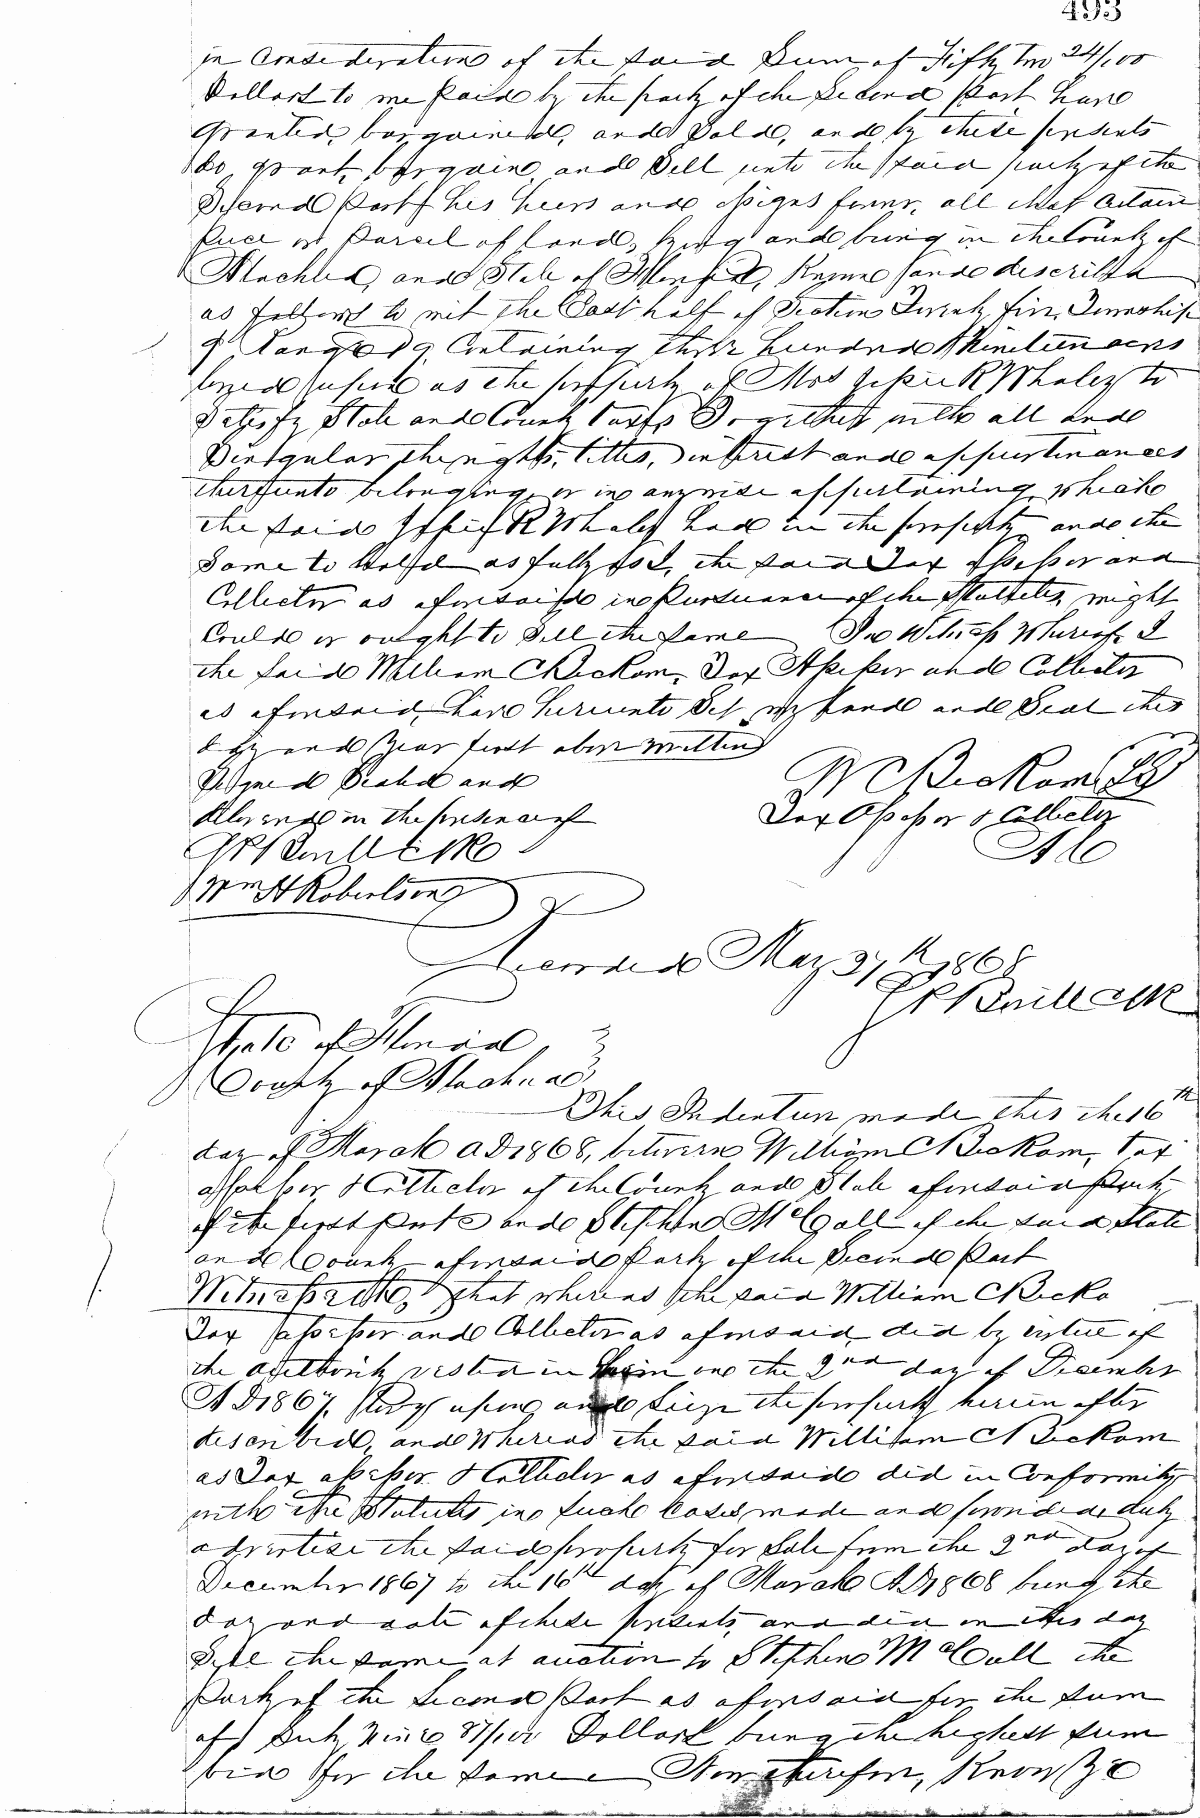 493
in consideration of the said Sum of Fifty two 24/100
Dollars to me Paid by the party of the Second Part have
granted, bargained, and Sold, and by these presents
do, grant, bargain, and Sell unto the said party of the
Second Part his heirs and assigns forever, all that certain
Piece or Parcel of land, lying and being in the County of
Alachua, and State of Florida, Known and described
as follows to wit the East half of Section Twenty five, Township
9 Range 19 Containing three hundred & nineteen acres
levied upon as the property of Mrs Jessie R Whaley to
Satisfy State and County taxes Together with all and
Singular the rights, titles, interest and appurtinances
thereunto belonging or in anywise appertaining, which
the said Jessie R Whaley had in the property and the
Same to hold as fully as I, the said Tax Assessor and
Collector as aforesaid in Pursuance of the Statutes, might
Could or ought to Sell the Same In Witness Whereof I
the Said William C Beckom, Tax Assessor and Collector
as aforesaid, have hereunto Set my hand and Seal this
day and Year first above written
Signed Sealed and W C Beckom
delivered in the presence of Tax Assessor & Collector
A C
Wm H Robertson
Recorded May 27th 1868
State of Florida
County of Alachua
This Indenture made this the 16th
day of March AD 1868, between William C Beckom, Tax
assessor & Collector of the County and State aforesaid Party
of the first part and Stephen McCall of the said State
and County aforesaid Party of the Second Part
Witnesseth, that whereas the said William C Becko
Tax assessor and Collector as aforesaid did by virtue of
the authority vested in him on the 2nd day of December
AD 1867, Levy upon and Seize the property herein after
described, and Whereas the said William C Beckom
as Tax assessor & Collector as aforesaid did in Conformity
with the Statutes in Such Cases, made and provided, duly
advertise the said property for Sale from the 2nd day of
December 1867 to the 16th day of March AD 1868 being the
day and date of these presents, and did on this day
Sell the same at auction to Stephen McCall the
Party of the Second Part as aforesaid for the Sum
of Sixty Nine 87/100 Dollars being the highest sum
bid for the same Now therefore, Know Ye